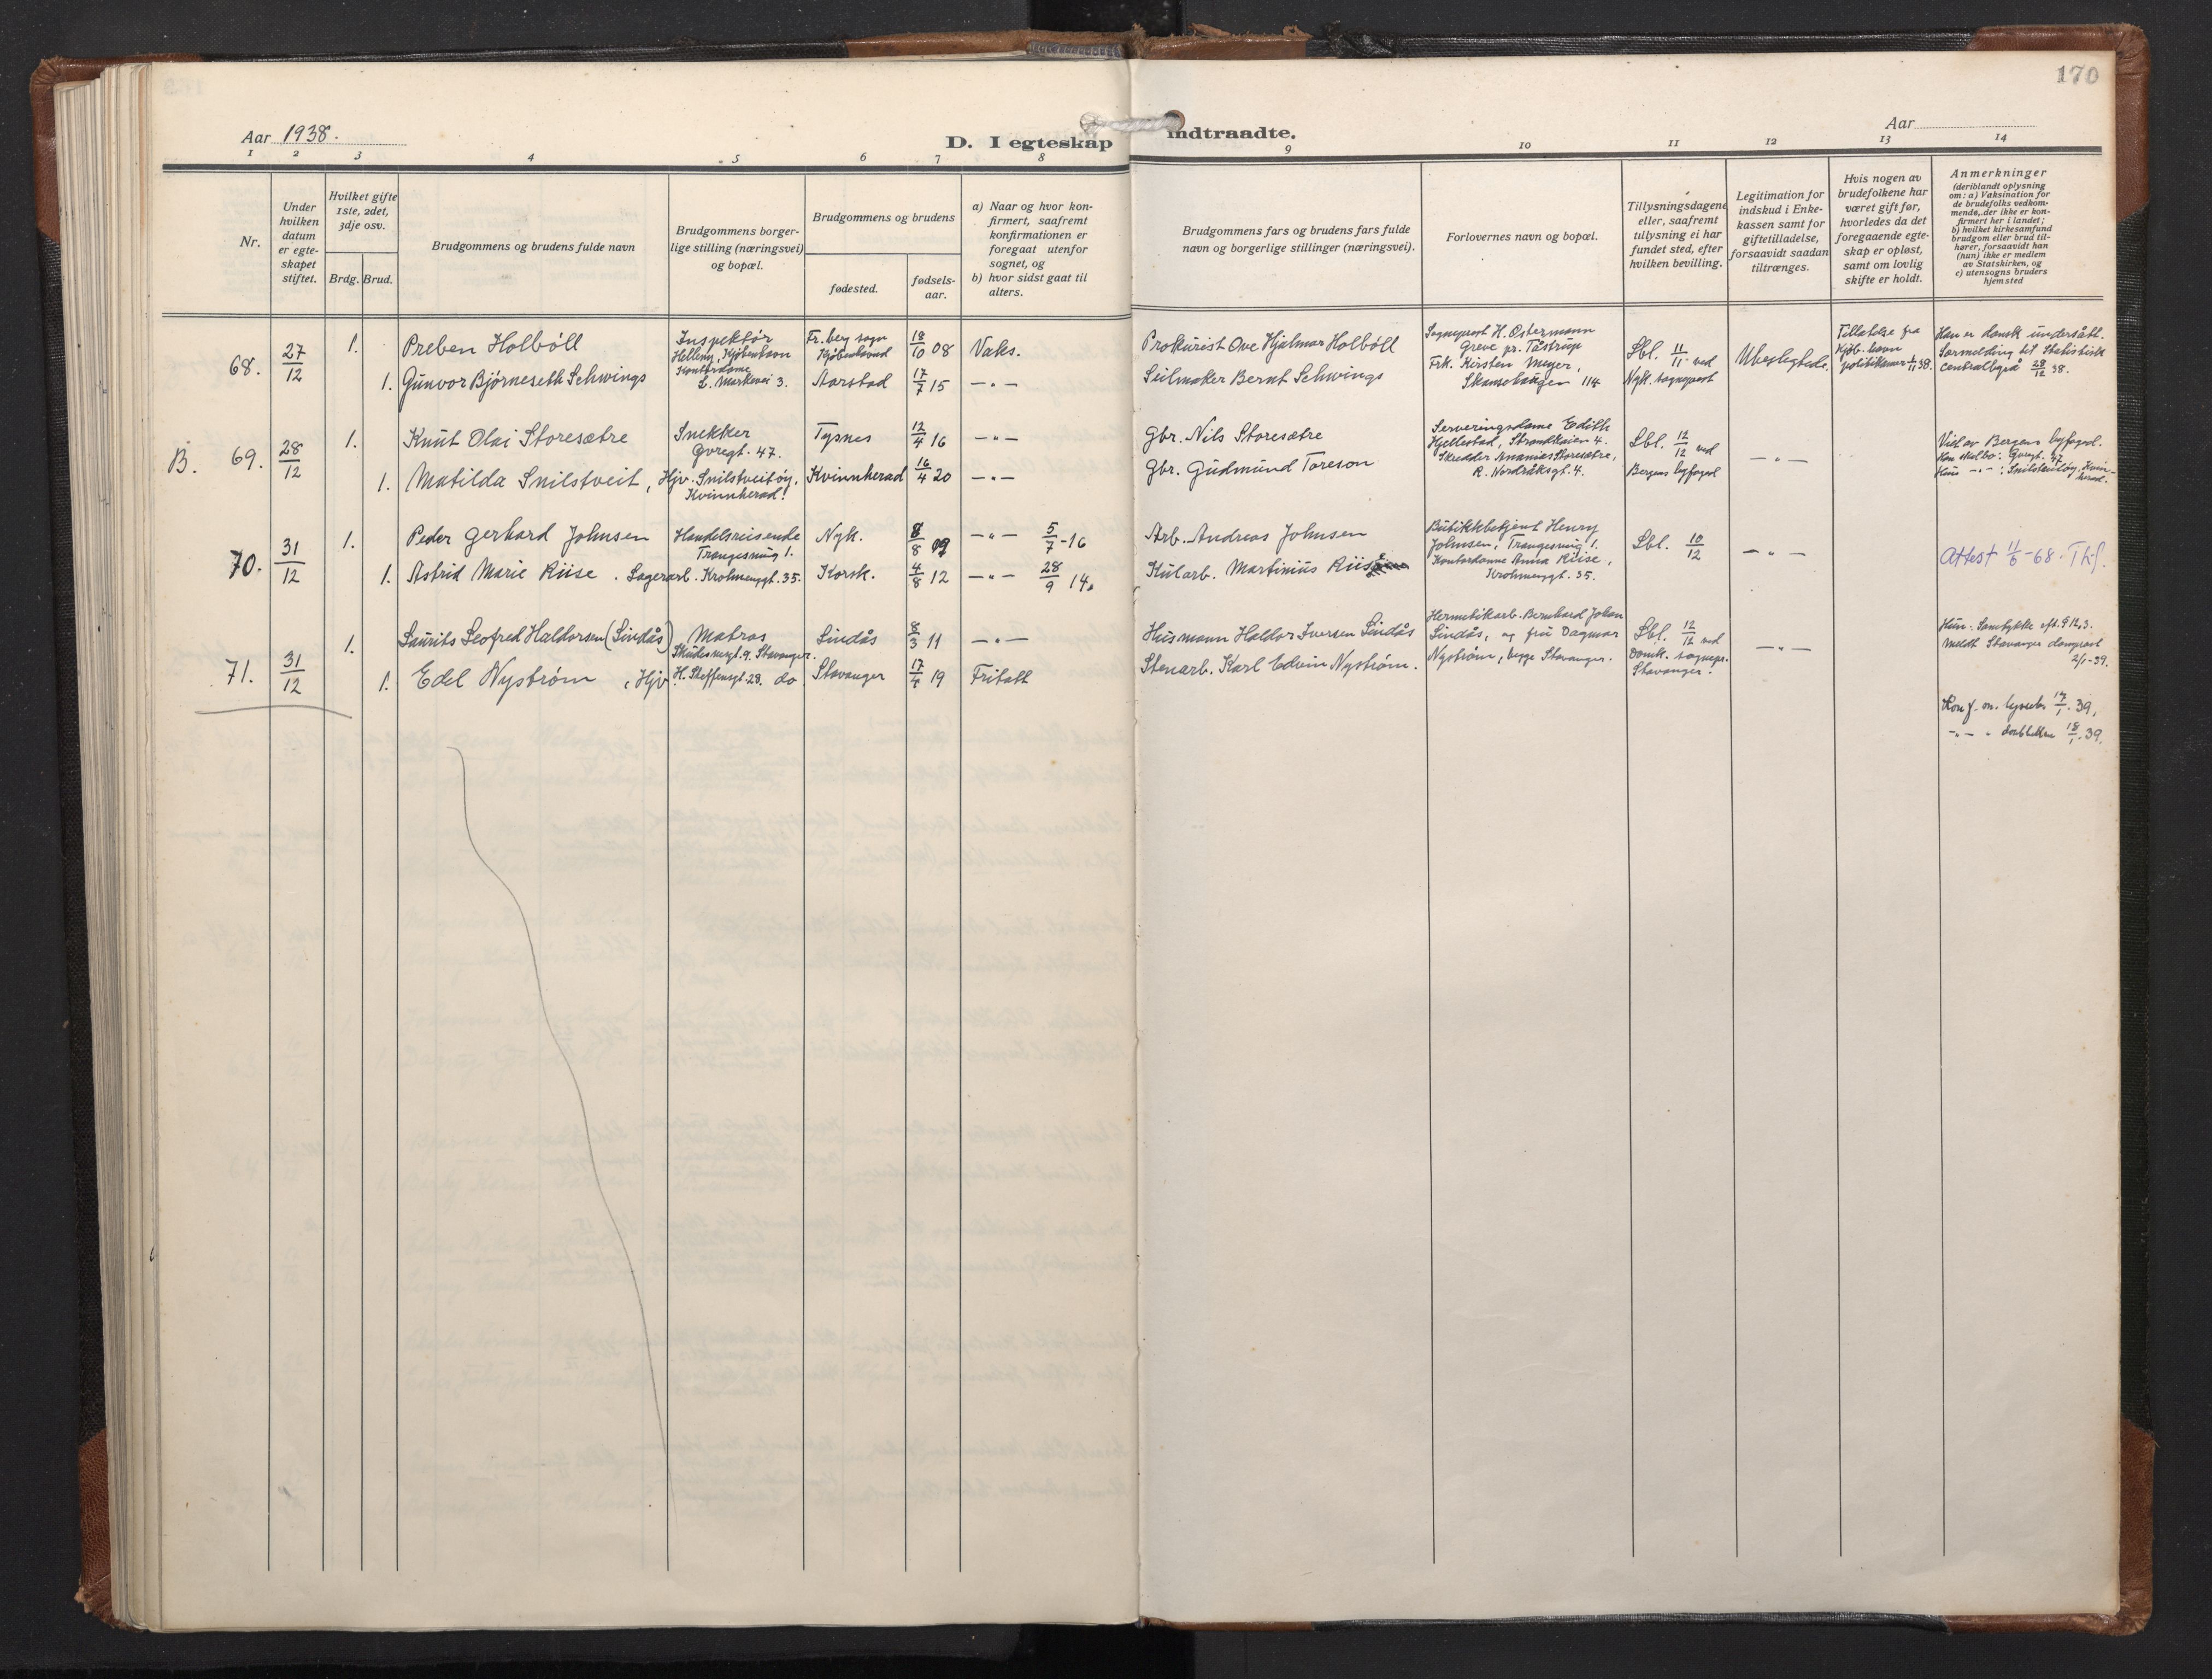 170
Aar 1938.
D. I egteskap indtraadte.
Aar
1 2 3 4 5 6 7 8 9 10 11 12 13 14
Nr.
Under hvilken datum er egteskapet stiftet.
Hvilket gifte 1ste, 2det, 3dje osv.
Brdg. Brud.
Brudgommens og brudens fulde navn
Brudgommens borgerlige stilling (næringsvei) og bopæl.
Brudgommens og brudens
fødested.
fødselsaar.
a) Naar og hvor konfirmert, saafremt konfirmationen er foregaat utenfor sognet, og
b) hvor sidst gaat til alters.
Brudgommens fars og brudens fars fulde navn og borgerlige stillinger (næringsvei).
Forlovernes navn og bopæl.
Tillysningsdagene eller, saafremt tillysning ei har fundet sted, efter hvilken bevilling.
Legitimation for indskud i Enkekassen samt for giftetilladelse, forsaavidt saadan tiltrænges.
Hvis nogen av brudefolkene har været gift før, hvorledes da det foregaaende egteskap er opløst, samt om lovlig skifte er holdt.
Anmerkninger
(deriblandt oplysning om: a) Vaksination for de brudefolks vedkommende, der ikke er konfirmert her i landet; b) hvilket kirkesamfund brudgom eller brud tilhører, forsaavidt han (hun) ikke er medlem av Statskirken, og c) utensogns bruders hjemsted
68. 27/12
1. Preben Holböll
Inspektør
Fr.berg sogn Kjöbenhavn 18/10 08 Vaks.
Prokurist Ove Hjalmar Holböll
Sogneprest H. Ostermann
Greve pr. Tåstrup
1. Gunvor Bjørneseth Schwings
Kontordame
L. Markevei 3.
Aarstad 17/7 15 -"-
Seilmaker Bernt Schwings
Frk. Kirsten Meyer,
Skansehaugen 114
Lbl. 11/11 ved
Nyk. sogneprest
Ubeslegtede.
Tillatelse fra
Kjöb.havn
1/11 38.
Han er dansk undersått.
Særmelding til Statistisk
centralbyrå 28/12 38.
B. 69. 28/12
1. Knut Olai Storesætre
Snekker
Øvregt. 47.
Tysnes 12/4 16 -"-
Gbr. Nils Storesætre
Serveringsdame Edith
Hjellestad, Strandkaien 4.
1. Matilda Snilstveit, Hjv. Snilstveitöy,
Kvinnherad!
Kvinnherad 16/4 20 -"-
Gbr. Gudmund Toreson
Skredder Ananias Storesætre,
R. Nordråksgt. 4.
Lbl. 12/12 ved
Bergens byfogd
-"-
Viet av Bergens byfogd.
Han skal bo: Øvregt. 47
Hun -"-: Snilstveitöy, Kvinnherad.
70. 31/12
1. Peder Gerhard Johnsen
Handelsreisende
Trangesmug 1.
Nyk. 8/8 09 -"- 5/7-16
Arb. Andreas Johnsen
Butikkbetjent Henry
Johnsen, Trangesmug 1.
1. Astrid Marie Riise. Lagerarb. Krohnenggt. 35.
Korsk. 4/8 12 -"- 28/9 14.
Kularb. Martinius Riise
Kontordame Anna Riise,
Krohnenggt. 35.
Lbl. 10/12
-"-
Attest 11/6-68. Thf.
71. 31/12
1. Laurits Leofred Haldorsen (Lindås)
Matros
Skudesnesgt. 9. Stavanger.
Lindås 8/3 11 -"-
Husmann Haldor Iversen Lindås
Hermetikarb. Bernhard Johan
Lindås, og fru Dagmar
Nyström, begge Stavanger.
1. Edel Nyström, Hjv. H. Steffensgt. 28. do
Stavanger 17/4 19 Fritatt
Stenarb. Karl Edvin Nyström.
Lbl. 12/12 ved
Domk. sognepr.
Stavanger.
-"-
Hun: Samtykke eft. 9 12, 3.
Meldt Stavanger domprost
2/1-39.
Konf. m. lysnb. 17/1. 39,
-"- " dubletten 18/1. 39.